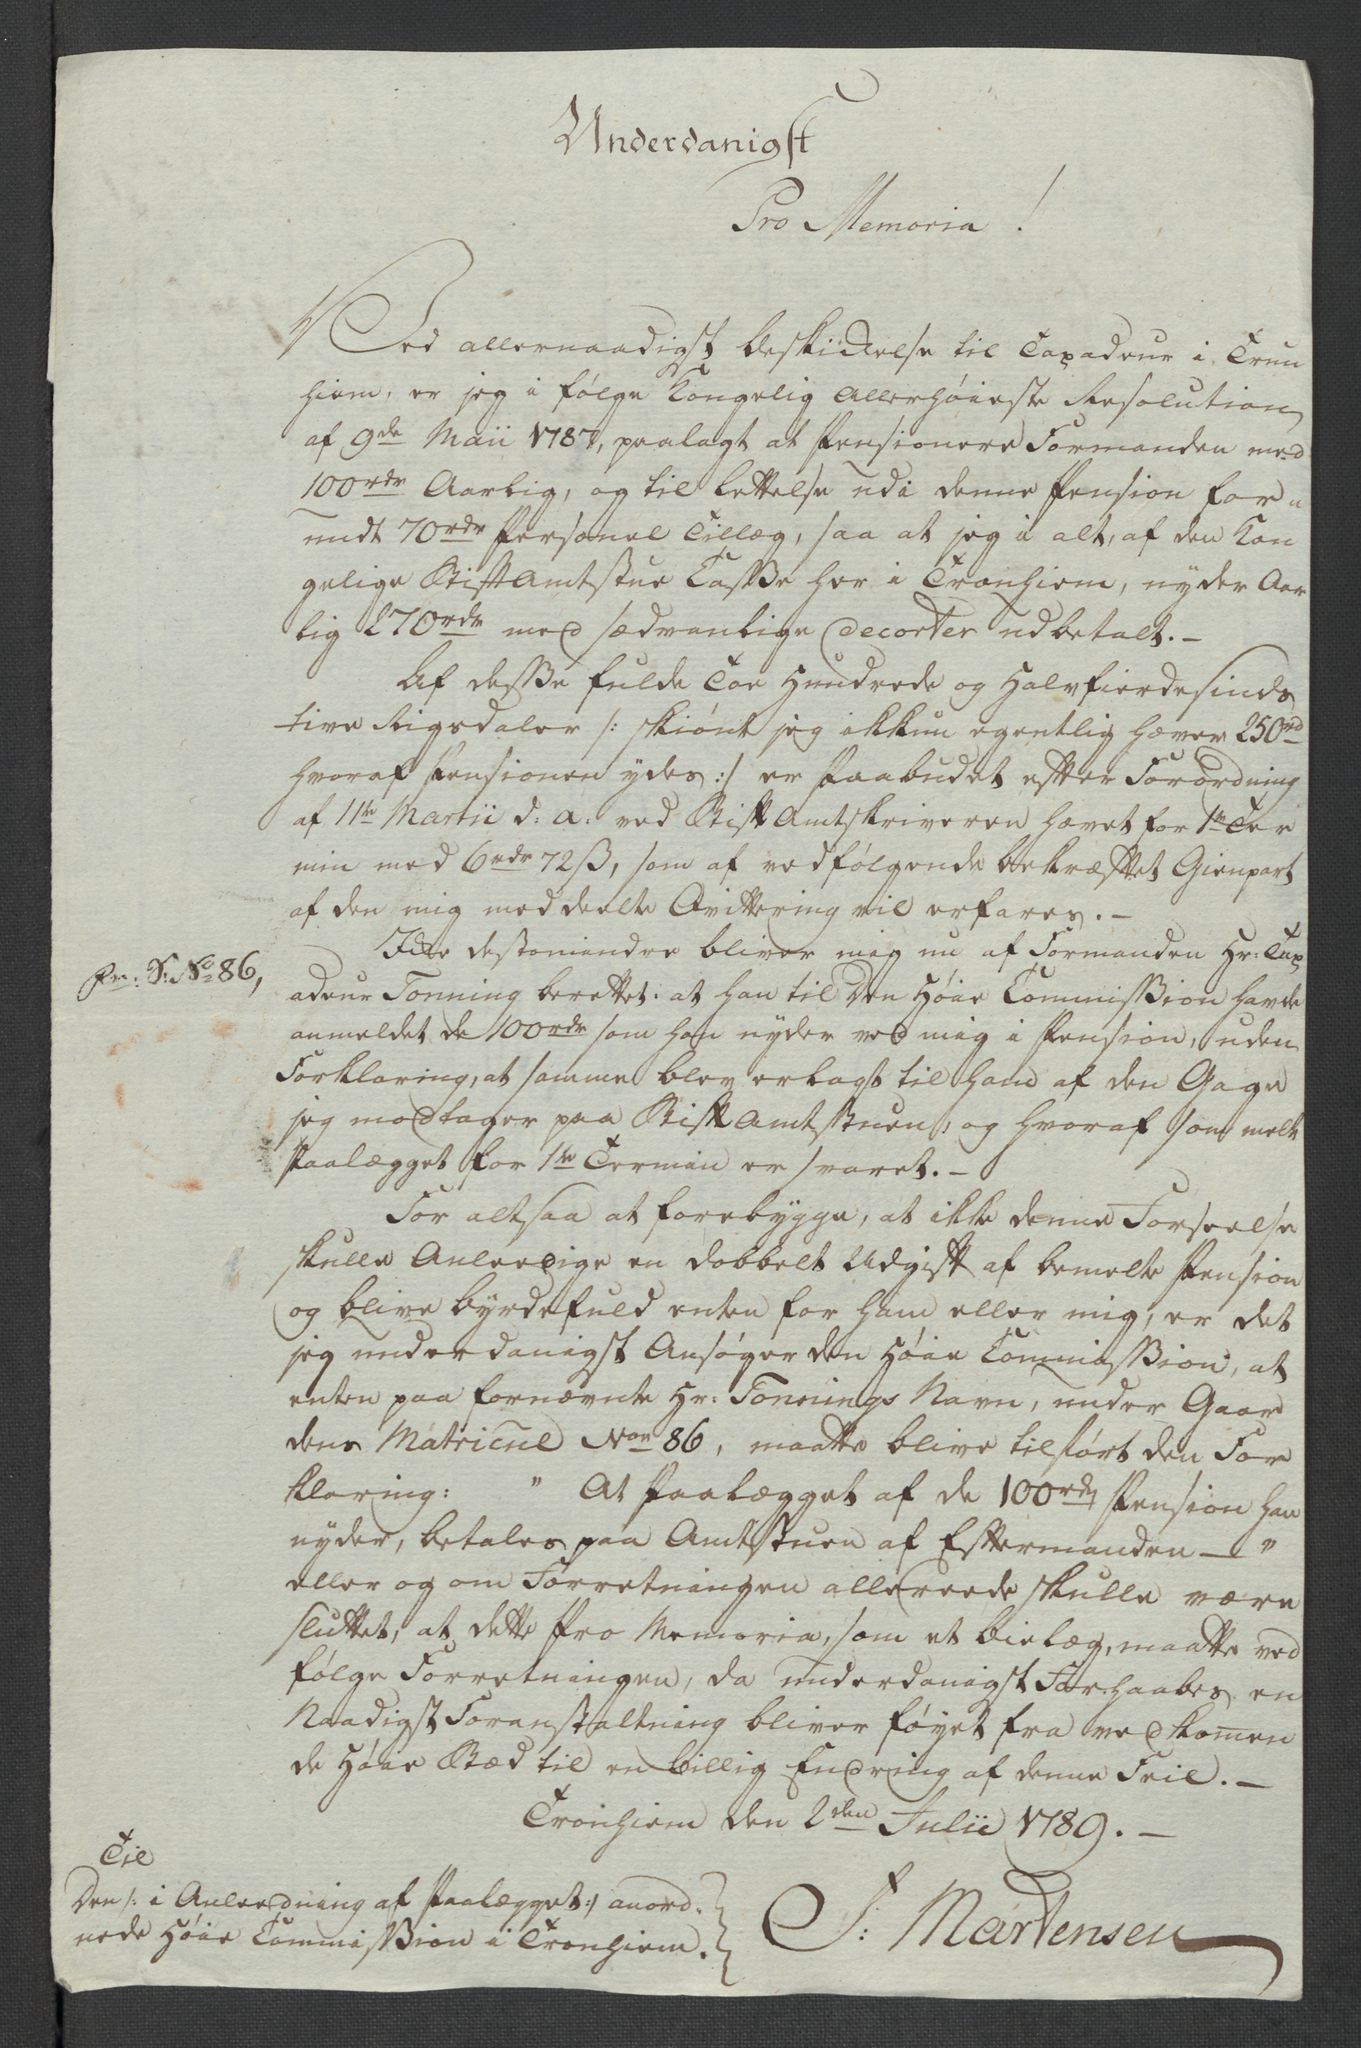 Underdanigst
Pro Memoria!
Ved allernaadigst Beskickelse til Taxadeur i Trun
hiem, er jeg i følge Kongelig Allerhöieste Resolution
af 9de Maii 1787, paalagt at Pensionere Formanden med
100rdr Aarlig, og til lettelse udi denne Pension for
undt 70rdr Personel Tillæg, saa at jeg i alt, af den Kon
gelige Stiftamtstue Casse her i Tronhiem, nyder Aar
lig 270rdr med sædvanlige decorter udbetalt.-
Af desse fulde Toe Hundrede og Halvfierdesinds
tive Rigsdaler /: skiönt jeg ikkun egentlig hæver 250rd
hvoraf Pensionen ydes :/ er Paabudet efter Forordning
af 11te Martii d: a: ved Stiftamtskriveren hævet for 1te Ter
min med 6rdr 72ß, som af vedfølgende bekræftet Gienpart
af den mig meddeelte Qvittering vil erfares.-
Icke destomindre bliver mig nu af Formanden Hr: Tax
Pr: S: No 86,
adeur Tonning berettet: at han til Den Höie Commission havde
anmeldet de 100rdr som han nyder ved mig i Pension, uden
Forklaring, at samme blev erlagt til ham af den Gage
jeg modtager paa Stiftamtstuen, og hvoraf som melt
Paalægget for 1te Termin er svaret.-
For altsaa at forebygge, at ikke denne Forseelse
skulle Anleedige en dobbelt Udgift af bemelte Pension
og blive byrdefuld enten for ham eller mig, er det
jeg underdanigst Ansöger den Höie Commission, at
enten paa fornævnte Hr: Tonnings Navn, under Gaar
dens Matricul Nor 86, maatte blive tilført den For
klaring: " At Paalægget af de 100rdr Pension han
nyder, betales paa Amtstuen af Eftermanden - "
eller og om Forretningen allereede skulle være
sluttet, at dette Pro Memoria, som et Bielæg, maatte ved
følge Forretningen, da underdanigst Forhaabes en
Naadigst Foranstaltning bliver föyet fra vedkommen
de Höie Stæd til en billig Endring af denne Feil.-
Tronhiem den 2den Julii 1789.-
Til
Den /: i Anleedning af Paalægget :/ anord-
nede Höie Commission i Tronhiem.
J: Mårtensen